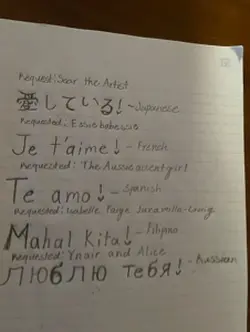 Request: Soar the Artist
愛している! ~ Japanese
Requested: Essie babessie
Je t'aime! - French
Requested: The Aussie accent girl
Te amo! - Spanish
Requested: Isabelle Paige Jaramilla-
Mahal Kita! - Filipino
Requested: Ynair and Alice
Люблю тебя! - Russian